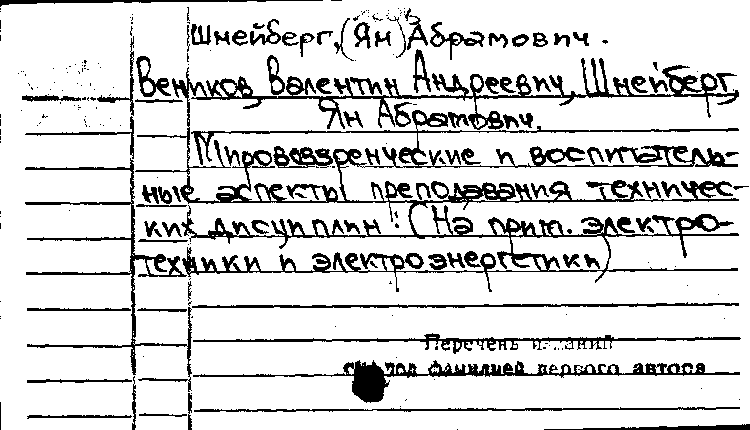 Шнейберг, (Ян) Абрамович.
Веников, Валентин Андреевич, Шнейберг,
Ян Абрамович.
Мировоззренческие и воспитатель-
ные аспекты преподавания техничес-
ких дисциплин: (На прим. электро-
техники и электроэнергетики)
Перечень изданий
см. под фамилией первого автора